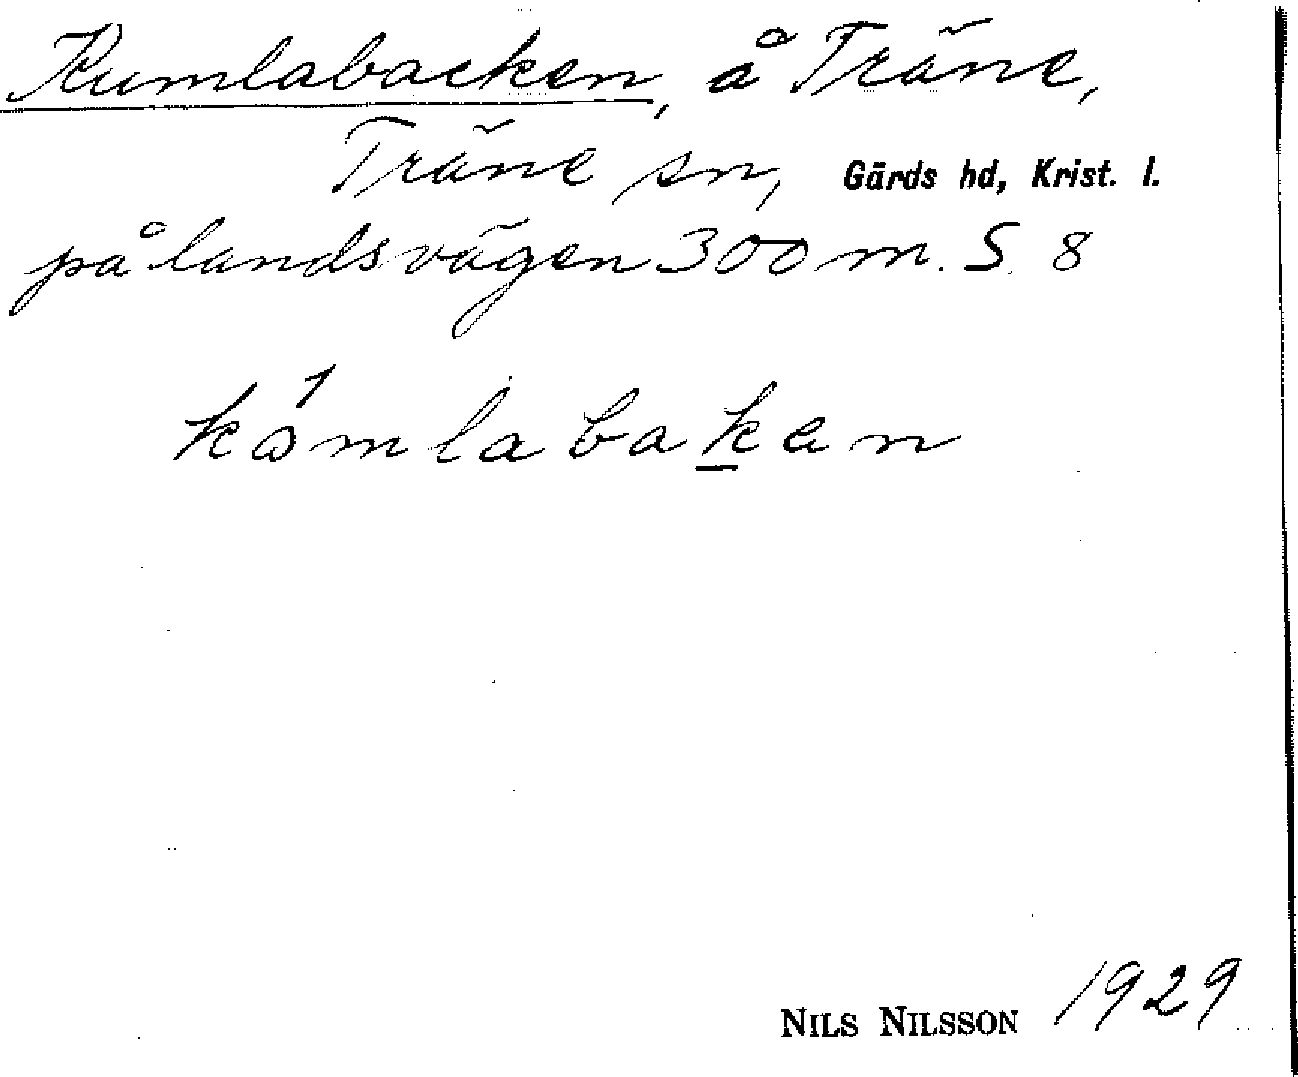 Kumlabacken, å Träne,
Träne sn, Gärds hd, Krist. l.
på landsvägen 300 m. S. 8
kòmlabaken
NILS NILSSON 1929